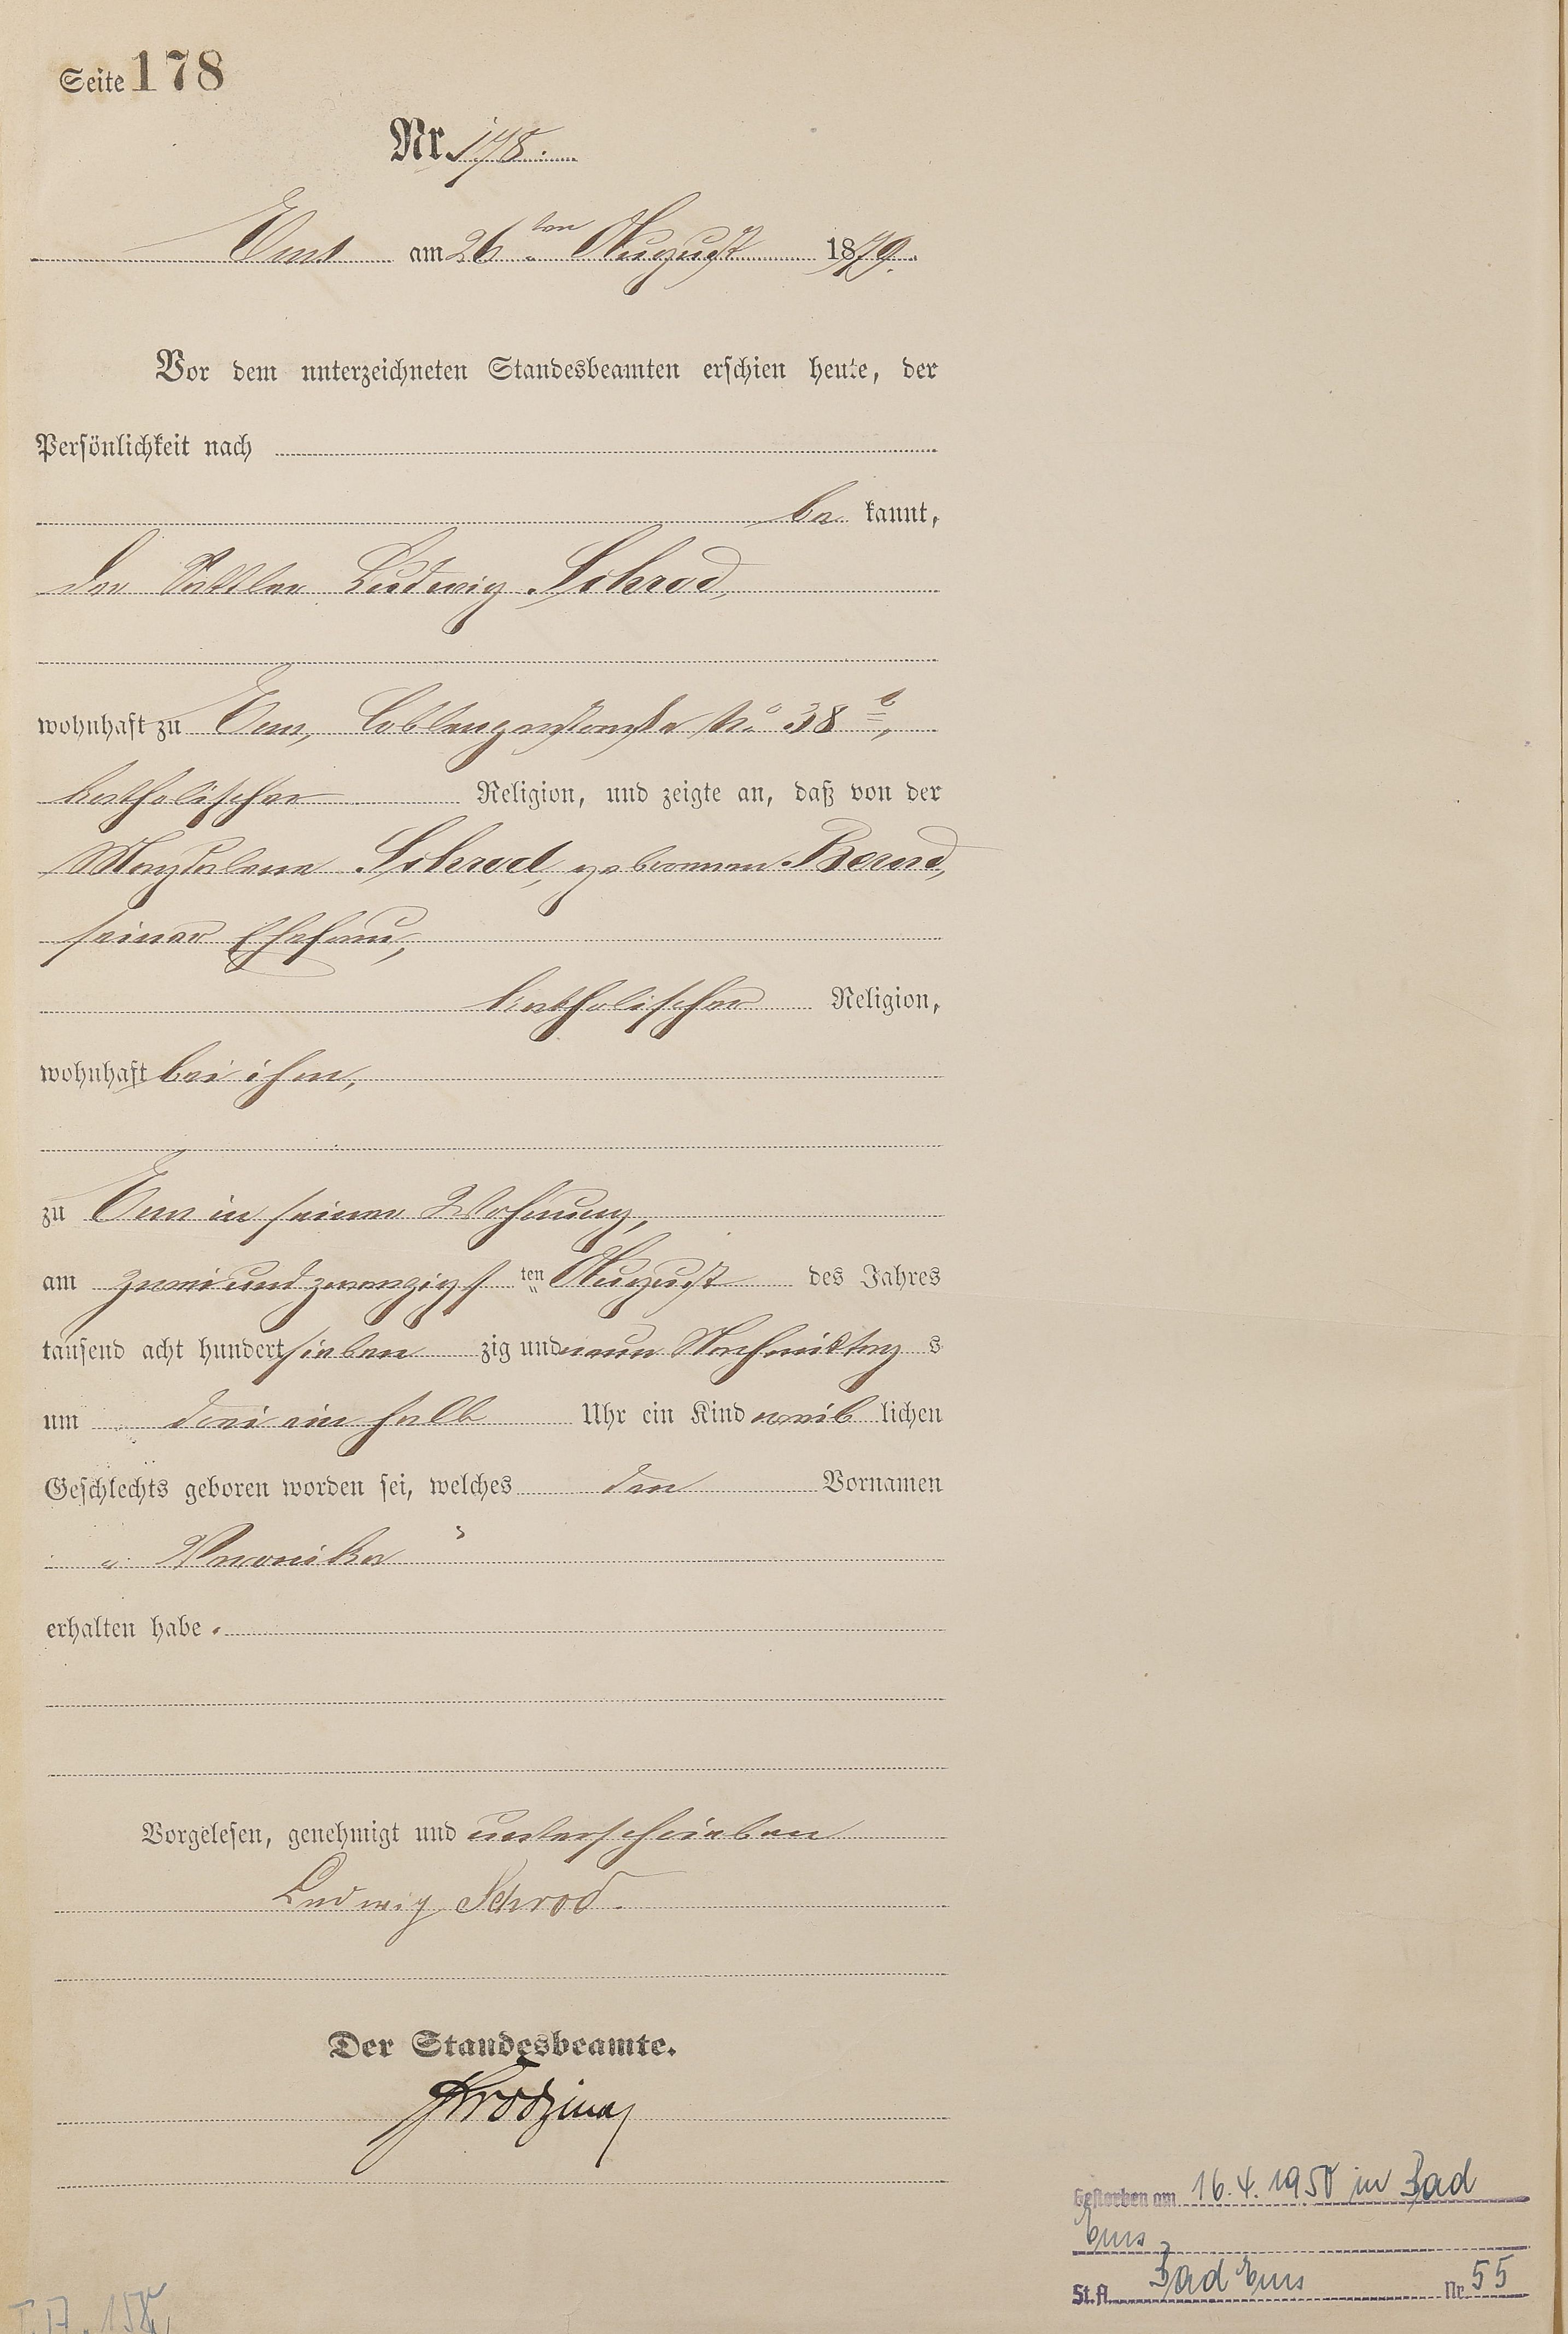 Seite 178
Nr. 178.
Ems am 26ten August 1879.
Vor dem unterzeichneten Standesbeamten erschien heute, der
Persönlichkeit nach
be kannt,
der Sattler Ludwig Schrod,
wohnhaft zu Ems, Coblenzerstraße No. 38 b,
katholischer Religion, und zeigte an, daß von der
Magdalena Schrod, geborenen Bernd,
seiner Ehefrau,
katholischer Religion,
wohnhaft bei ihm,
zu Ems in seiner Wohnung,
am zwei und zwanzigst ten August des Jahres
tausend acht hundert sieben zig und neun Nachmittag s
um drei ein halb Uhr ein Kind weib lichen
Geschlechts geboren worden sei, welches den Vornamen
„Veronika"
erhalten habe.
Vorgelesen, genehmigt und unterschrieben
Ludwig Schrod.
Der Standesbeamte.
Gestorben am 16.4.1950 in Bad
Ems
St.A. Bad Ems Nr. 55